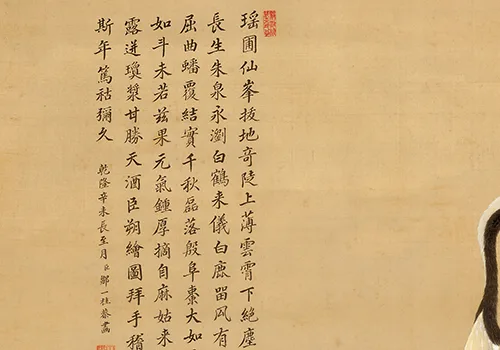 瑶圃仙峯拔地奇陵上薄雲霄下絶塵
長生朱泉永瀏白鶴来儀白鹿畱风有
屈曲蟠覆結實千秋磊落殷阜棗大如
如斗未若茲果元氣鍾厚摘自麻姑来
露迸瓊漿甘勝天酒臣朔繪圖拜手稽
斯年篤祜彌久
乾隆辛未長至月臣鄒一桂恭畫